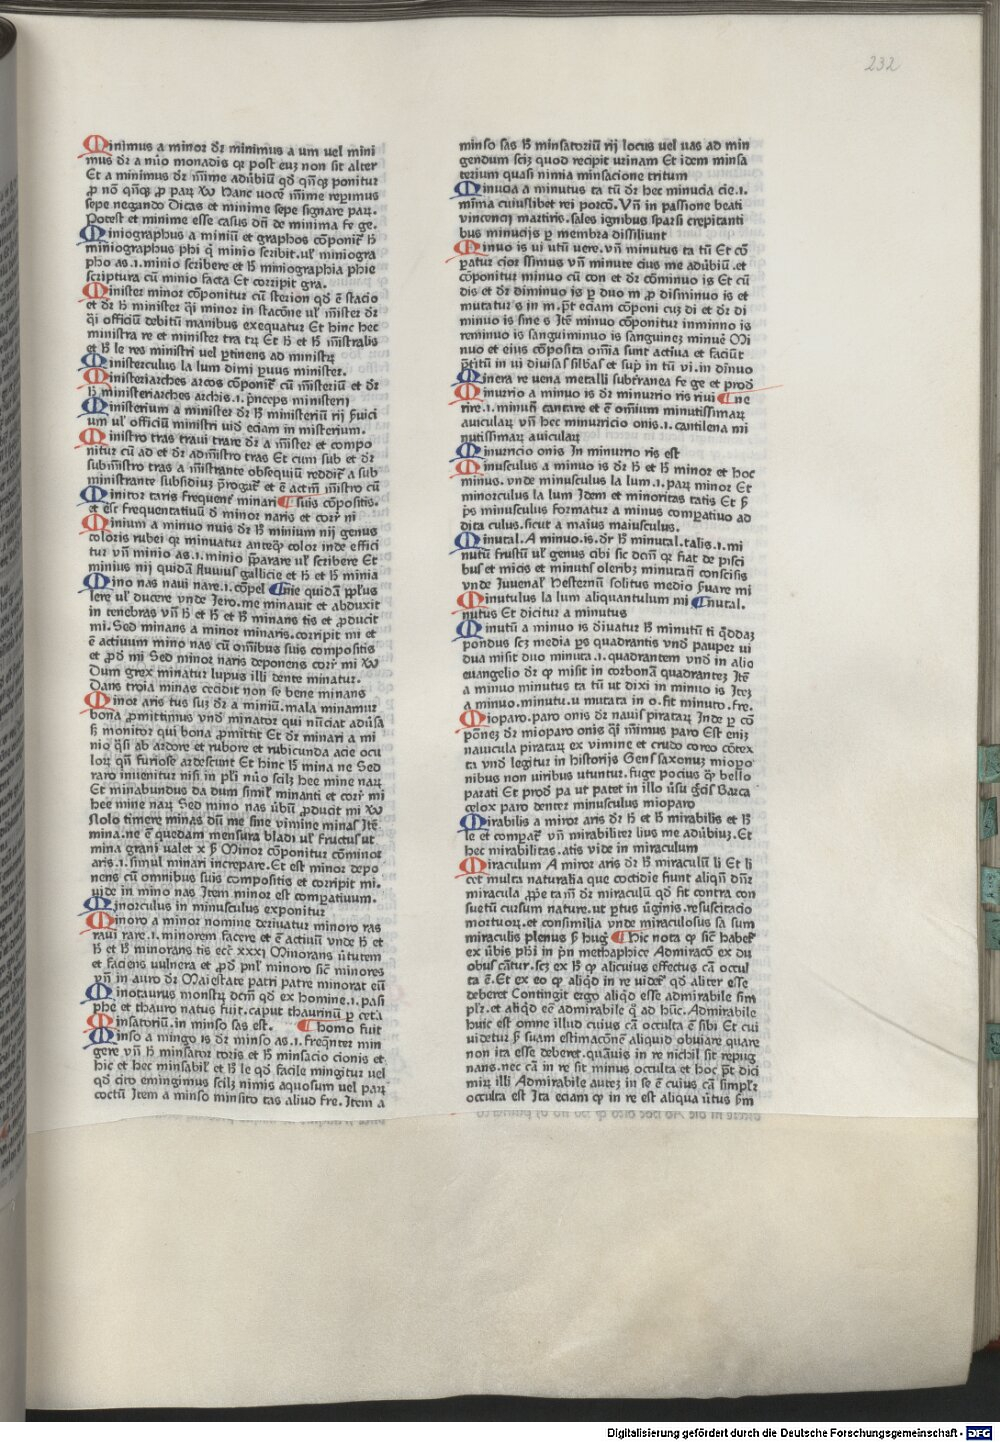 232
Minimus a minor dr minimus a um uel mini
mus dr a nūo monadis qr post euʒ non sit alter
Et a minimus dr mīme adūbiū qd qñqʒ ponitur
ꝓ nō qñqʒ ꝓ parꝝ Hanc uocē mīme reperimus
sepe negando Dicas et minime sepe signare parꝝ.
Potest et minime esse casus dñ de minima fe ge.
Miniographus a miniū et graphos cōponit̄ h̄
miniographus phi q̇ minio scribit.ul' miniogra
pho as.i.minio scribere et h̄ miniographia phie
scriptura cū minio facta Et corripit gra.
Minister minor cōponitur cū sterion qd ē stacio
et dr h̄ minister q̇i minor in stacōne ul' mīster dr
q̇i officiū debitū manibus exequatur Et hinc hec
ministra re et minister tra trꝝ Et h̄ et h̄ mīstralis
et h̄ le res ministri uel ꝑtinens ad ministrꝝ
Ministerculus la lum dimi ꝑuus minister.
Ministeriarches arcos cōponit̄ cū misteriū et dr
h̄ ministeriarches archis.i.p̄nceps ministerij
Ministerium a minister dr h̄ ministeriū rij ſuici
um ul' officiū ministri uid eciam in misterium.
Ministro tras traui trare dr a mīster et compo
nitur cū ad et dr admīstro tras Et cum sub et dr
submīstro tras a mīstrante obsequiū reddit̄ a sub
ministrante subsidiuʒ p̄rogat̄ et ē actiū mīstro cū
Minitor taris frequent̄ minari ¶ suis cōpositis.
et est frequentatiuū ð minor naris et corr̄ ni
Minium a minuo nuis dr h̄ minium nij genus
coloris rubei qr minuatur anteqͥ color inde effici
tur vñ minio as.i.minio ſparare ul' scribere Et
minius nij quidā fluuius gallicie et h̄ et h̄ minia
Mino nas naui nare.i.cōpel ¶ nie quidā pp̄lus
lere ul' ducere vnde Jero.me minauit et abduxit
in tenebras vñ h̄ et h̄ et h̄ minans tis et ꝓducit
mi.Sed minans a minor minaris.corripit mi et
ē actiuum mino nas cū omībus suis compositis
et ꝓd mi Sed minor naris deponens corr̄ mi
Dum grex minatur lupus illi dente minatur.
Dans troia minas cecidit non se bene minans
Minor aris tus suʒ dr a miniū.mala minamur
bona ꝓmittimus vnd minator qui nūciat aduſa
ſʒ monitor qui bona ꝓmittit Et dr minari a mi
nio q̇si ab ardore et rubore et rubicunda acie ocu
lorꝝ qñ furiose ardescunt Et hinc h̄ mina ne Sed
raro inuenitur nisi in pl'i nūo scilʒ hee mine narꝝ
Et minabundus da dum simil' minanti et corr̄ mi
hee mine narꝝ Sed mino nas ūbū ꝓducit mi
stolo timere minas dū me sine vimine minas Itē
mina.ne ē quedam mensura bladi ul' fructus ut
mina grani ualet x ß Minor cōponitur cōminor
aris.i.simul minari increpare.Et est minor depo
nens cū omnibus suis compositis et corripit mi.
uide in mino nas Item minor est compatiuum.
Minorculus in minusculus exponitur
Minoro a minor nomine deriuatur minoro ras
raui rare.i.minorem facere et ē actiuū vnde h̄ et
h̄ et h̄ minorans tis ecc̄ xxxj Minorans ūtutem
et faciens uulnera et ꝓd pnl' minoro sic̄ minores
vñ in auro dr Maiestate patri patre minorat eū
Minotaurus monstrꝝ dcm̄ qd ex homine.i.pasi
phe et thauro natus fuit.caput thaurinū ꝑ ceta
Minsatoriū.in minso sas est. ¶ homo fuit
Minso a mingo is dr minso as.i.freqn̄ter min
gere vñ h̄ minsator toris et h̄ minsacio cionis et
hic et hec minsabil' et h̄ le qd facile mingitur uel
qd cito emingimus scilʒ nimis aquosum uel parꝝ
coctū Item a minso minsito tas aliud fre.Item a
minso sas h̄ minsatoriū rij locus uel uas ad min
gendum sciʒ quod recipit urinam Et idem minsa
terium quasi nimia minsacione tritum
Minucia a minutus ta tū dr hec minucia cie.i.
mīma cuiuslibet rei porcō.Vñ in passione beati
vincencij martiris.sales ignibus sparsi crepitanti
bus minucijs ꝑ membra dissiliunt
Minuo is ui utū uere.vñ minutus ta tū Et cō
ꝑatur cior ssimus vñ minute cius me adūbiū.et
cōponitur minuo cū con et dr cōminuo is Et cū
dis et dr diminuo is ꝑ duo m ꝓ disminuo is et
mutatur s in m.p̄t eciam cōponi cuʒ di et dr di
minuo is sine s Itē minuo cōponitur inminno is
reminuo is sanguiminuo is sanguineʒ minuē Mi
nuo et eius cōposita omīa sunt actiua et faciūt
p̄titū in ui diuisas silbas et sup̄ in tū vi.in dīnuo
Minera re uena metalli subterranea fe ge et prod
Minurrio a minuo is dr minurrio ris riui ¶ ne
rire.i.minuū cantare et ē omīum minutissimaꝝ
auiculaꝝ vñ hec minurricio onis.i.cantilena mi
nutissimaꝝ auiculaꝝ
Minurncio onis In minurno ris est
Minusculus a minuo is dr h̄ et h̄ minor et hoc
minus.vnde minusculus la lum.i.parꝝ minor Et
minorculus la lum Idem et minoritas tatis Et ß
p̄s minusculus formatur a minus compatiuo ad
dita culus.sicut a maius maiusculus.
Minutal.A minuo.is.dr h̄ minutal.talis.i.mi
nutū frustū ul' genus cibi sic dcm̄ qr fiat de pisci
bus et micis et minutis oleribʒ minutatī conscisis
vnde Juuenal' Hesternū solitus medio ſuare mi
Minutulus la lum aliquantulum mi ¶ nutal.
nutus Et dicitur a minutus
Minutū a minuo is ðiuatur h̄ minutū ti q̇ddaʒ
pondus sceʒ media ps quadrantis vnd pauper ui
dua misit duo minuta.i.quadrantem vnd in alio
euangelio dr qͥ misit in corbonā quadranteʒ Itē
a minuo minutus ta tū ut dixi in minuo is Iteʒ
a minuo.minutu.u mutata in o.fit minuto.fre.
Mioparo.paro onis dr nauis pirataꝝ Inde ꝑ cō
pōneʒ dr mioparo onis q̇i mīmus paro Est eniʒ
nauicula pirataꝝ ex vimine et crudo coreo cōtex
ta vnd legitur in historijs Gens saxonuʒ miopo
nibus non uiribus utuntur.fuge pocius qͥ bello
parati Et prod pa ut patet in illo ūsu gͣcis Barca
celox paro denter minusculus mioparo
Mirabilis a miror aris dr h̄ et h̄ mirabilis et h̄
le et compat̄ vñ mirabiliter lius me adūbiuʒ.Et
hec mirabilitas.atis vide in miraculum
Miraculum A miror aris dr h̄ miraculū li Et li
cet multa naturalia que cotidie fiunt aliqñ dn̄r
miracula ꝓp̄e tam̄ dr miraculū qd fit contra con
suetū cursum nature.ut ꝑtus ūginis.resuscitacio
mortuoꝝ.et consimilia vnde miraculosus sa sum
miraculis plenus ß hug ¶ Hic nota qͥ sic̄ habet̄
ex ūbis phi in p̄n methaphice Admiracō ex du
obus cātur.sceʒ ex h̄ qͥ alicuius effectus cā occul
ta ē.Et ex eo qͥ aliqd in re uidet̄ qd aliter esse
deberet Contingit ergo aliqd esse admirabile sim
pl'r.et aliqd eē admirabile q̇ ad hūc.Admirabile
huic est omne illud cuius cā occulta ē sibi Et cui
uidetur ß suam estimacōnē aliquid obuiare quare
non ita esse deberet.quāuis in re nichil sit repug
nans.nec cā in re sit minus occulta et hoc p̄t dici
mirꝝ illi Admirabile auteʒ in se ē cuius cā simpl'r
occulta est Ita eciam qͥ in re est aliqua ūtus ſm
Digitalisierung gefördert durch die Deutsche Forschungsgemeinschaft - DFG